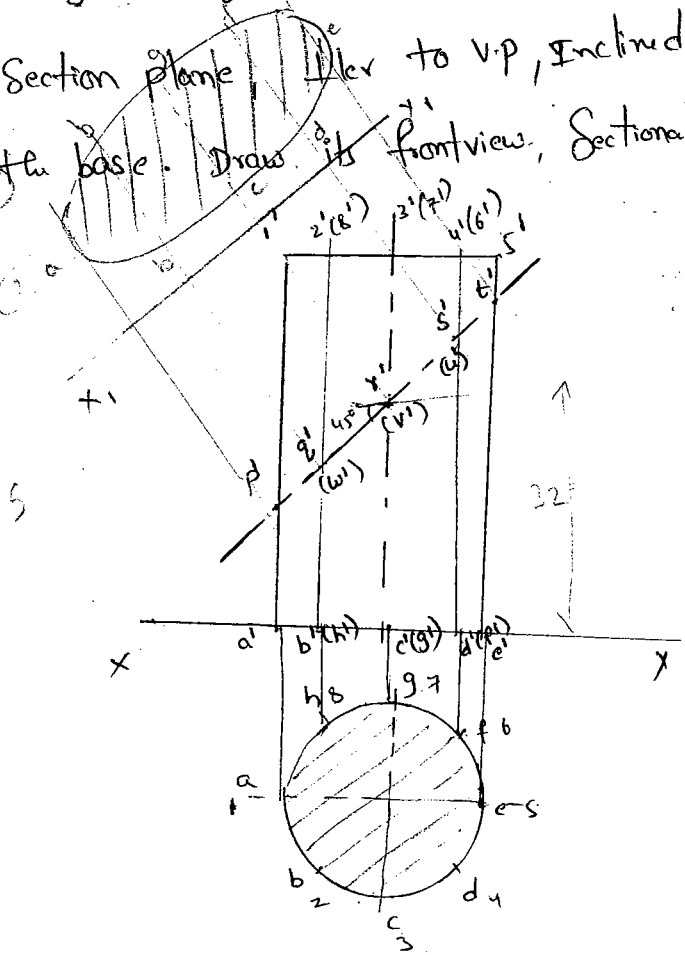 Section plane ⊥ler to V.P, Inclined
the base. Draw its frontview, Sectiona
e
d
c
b
a
x1
y1
1'
2'(8') 3'(7') 4'(6') 5'
t'
s'
(u')
r'
45°
(v')
q'
(w')
p'
32
5
a' b'(h') c'(g') d'(f') e'
X Y
h 8 g.7 f 6
a
1
e-5
b
2
d 4
c
3